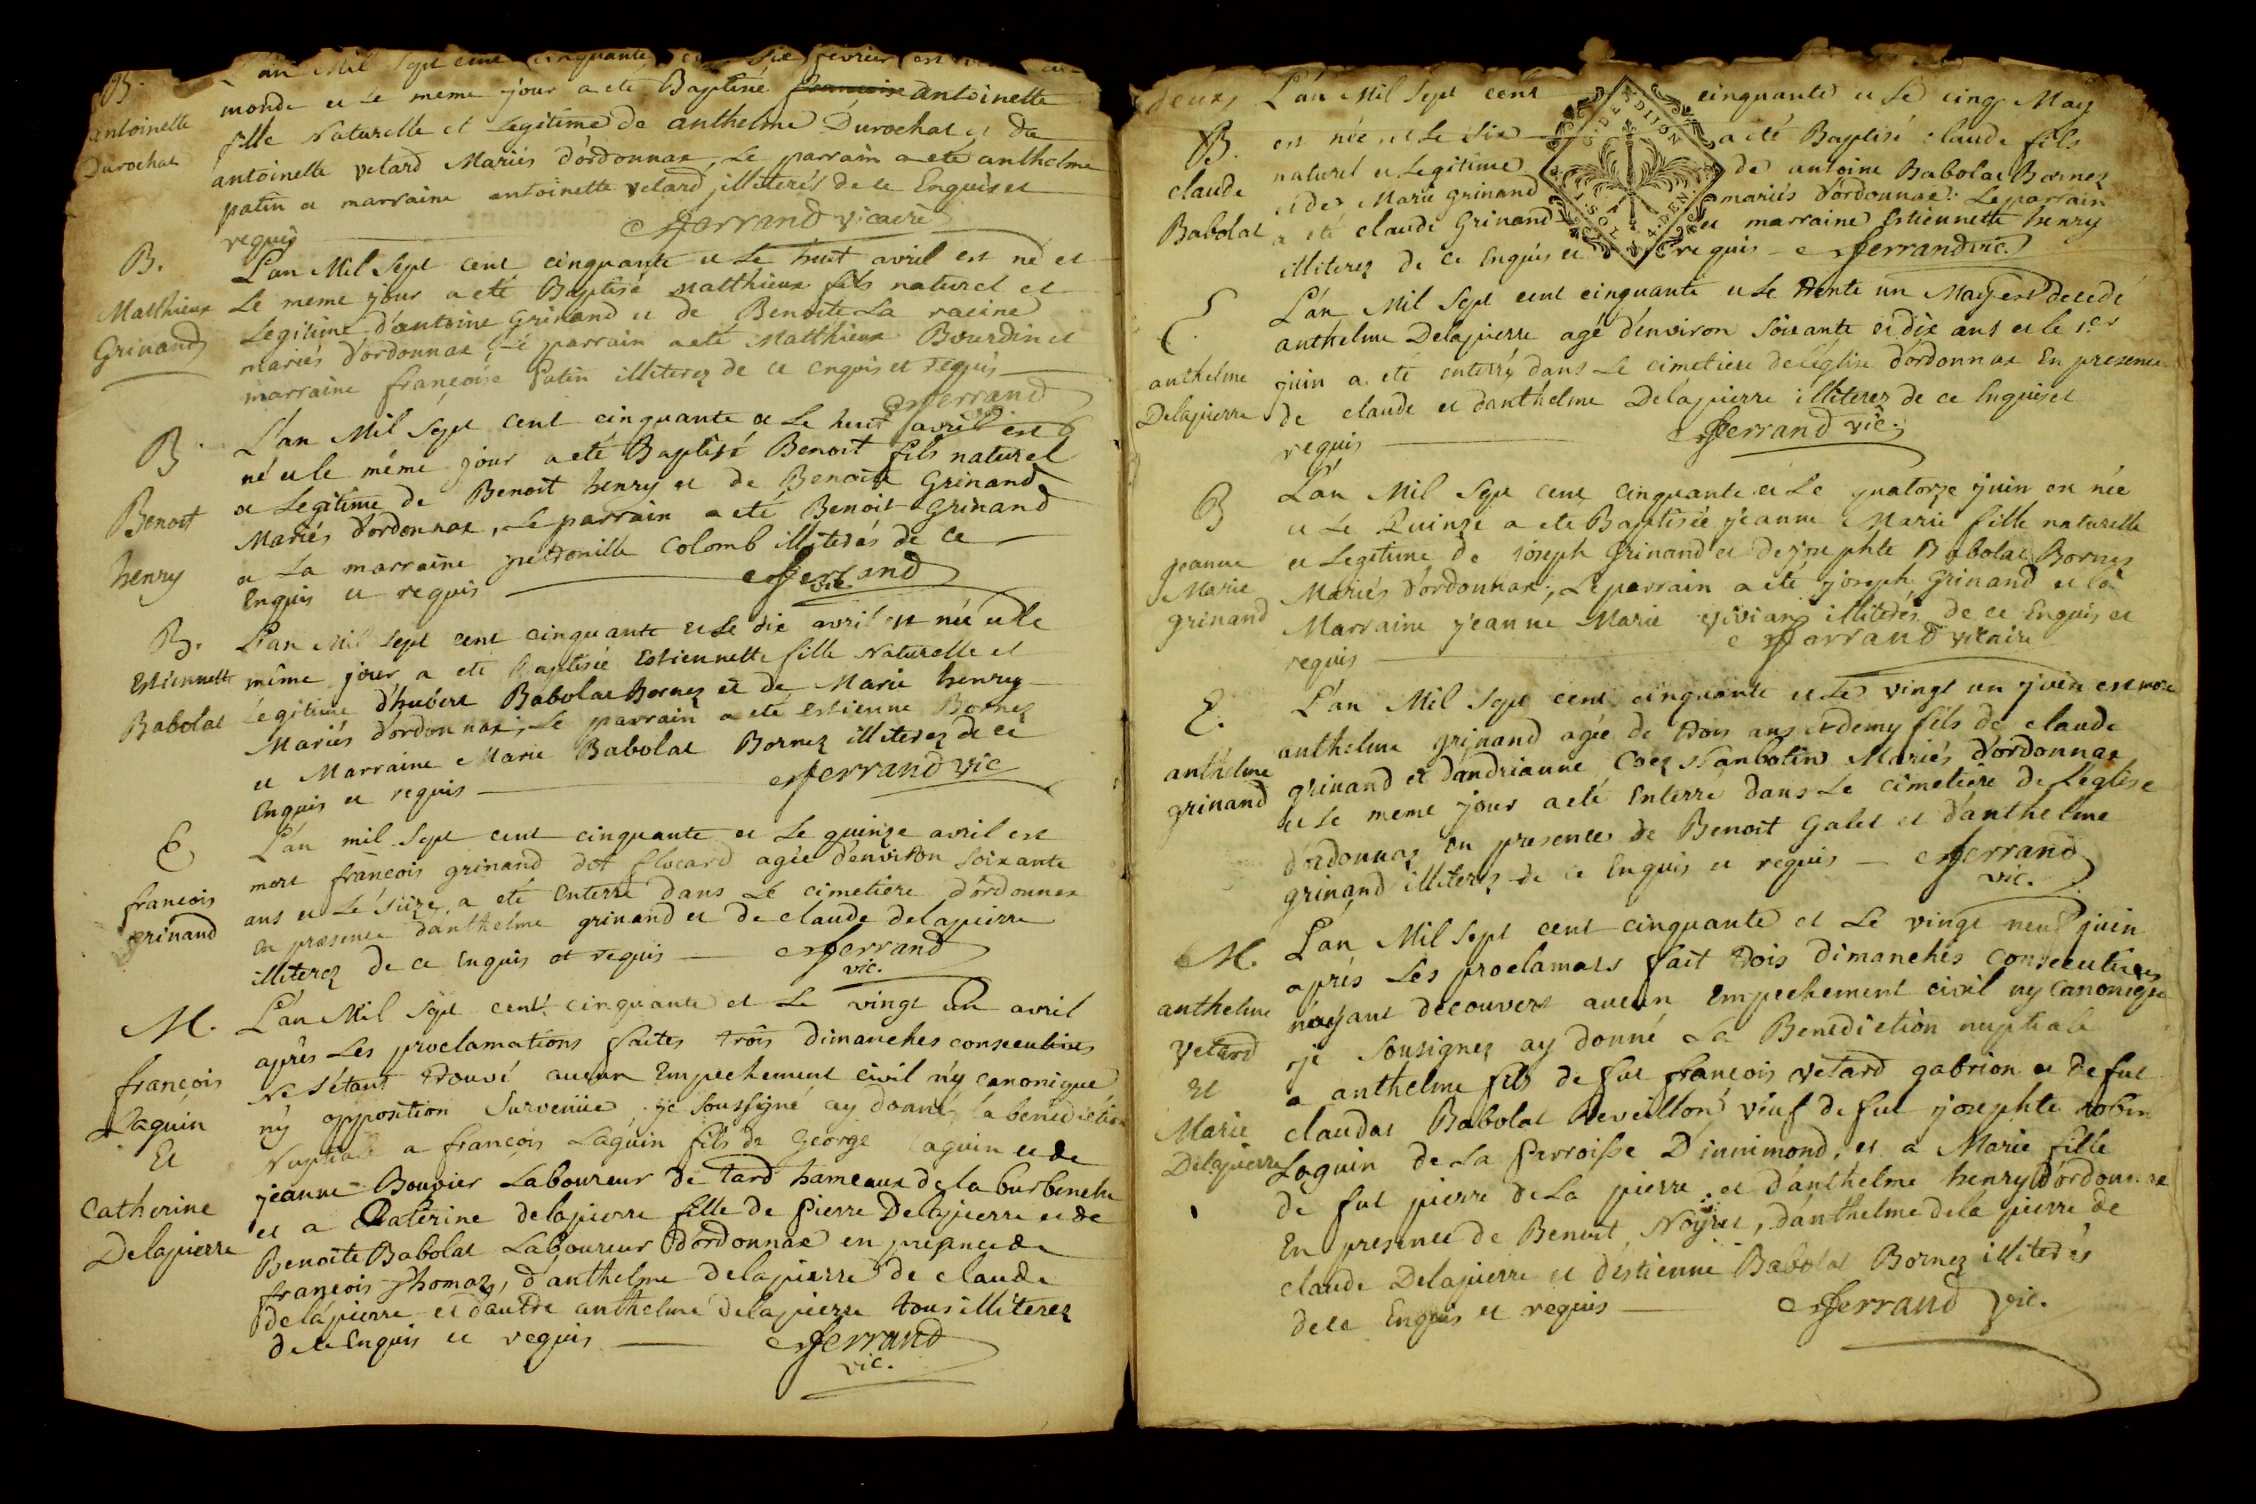 B.
antoinette
Durochat
L'an Mil Sept cent cinquante six fevrier est
monde et le meme jour a eté Baptiné antoinette
fille Naturelle et Legitime de anthelme Durochat et de
antoinette vetard Mariés d'ordonnax, Le parrain a eté anthelme
patin et marraine antoinette vetard illiterés de ce Enquis et
requis ferrand vicaire
B.
Matthieux
Grinand
L'an Mil Sept cent cinquante et Le huit avril est né et
Le meme jour a eté Baptisé Matthieux fils naturel et
Legitime d'antoine Grinand et de Benoite La racine
mariés d'ordonnax, Le parrain a eté Matthieux Bourdin et
marraine francoise Patin illiterez de ce enquis et requis
ferrand
B.
Benoit
henry
L'an Mil Sept cent cinquante et Le huit avril est
né et le méme jour a eté Baptisé Benoit fils naturel
et Legitime de Benoit henry et de Benoite Grinand
Mariés d'ordonnax, Le parrain a eté Benoit Grinand
et La marraine petronille Colomb illiterés de ce
Enquis et requis ferrand
vic.
B.
Estiennette
Babolat
L'an Mil Sept cent cinquante et Le dix avril est née et le
même jour a eté Baptisée Estiennette fille Naturelle et
Legitime d'hubert Babolat Bornez et de Marie henry
Mariés d'ordonnax; Le parrain a eté estienne Bornez
et Marraine Marie Babolat Bornez illiterez de ce
Enquis et requis ferrand vic
E
francois
grinand
L'an mil Sept cent cinquante et Le quinze avril est
mort francois grinand dot flocard agée d'environ Soixante
ans et Le Seize a eté Enterré dans Le cimetiere d'ordonnex
en præsence d'anthelme grinand et de claude delapierre
illiterez de ce Enquis et requis ferrand
vic.
M.
francois
Laguin
Et
Catherine
Delapierre
L'an Mil Sept cent cinquante et Le vingt un avril
après Les proclamations faites trois dimanches consecutives
Ne s'étant trouvé aucun Empechement civil n'y canonique
n'y opposition Survenüe, je Soussigné ay donné la benediction
Nuptiale a françois Laguin fils de George Laguin et de
jeanne Bouvier Laboureur de tard hameaux de la burbenche
et a Catérine delapierre fille de Pierre Delapierre et de
Benoite Babolat Laboureur d'ordonnax en presence de
françois Thomaz, d'anthelme delapierre de claude
delapierre et d'autre anthelme delapierre tous illiterez
de ce Enquis et requis ferrand
vic.
deux
B.
claude
Babolat
L'an Mil Sept cent cinquante et Le cinq May
est née et Le Six a eté Baptisé claude fils
naturel et Legitime de antoine Babolat Bornez
et de Marie Grinand mariés d'ordonnax: Le parrain
a eté claude Grinand et marraine Estiennette henry
illiterez de ce Enquis et requis ferrand vic.
G. DE DIJON
SOL 4 DEN.
E
anthelme
Delapierre
L'an Mil Sept cent cinquante et Le trente un May est decedé
anthelme Delapierre agé d'environ Soixante et dix ans et le 1er
juin a eté enterré dans Le cimetiere de l'eglise d'ordonnax En presence
de claude et d'anthelme Delapierre illiterez de ce Enquis et
requis ferrand vic.
B
jeanne
Marie
grinand
L'an Mil Sept cent Cinquante et Le quatorze juin est née
et Le Quinze a eté Baptisée jeanne Marie fille naturelle
et Legitime de joseph Grinand et de josephte Babolat Bornez
Mariés d'ordonnax; Le parrain a eté joseph Grinand et la
Marraine jeanne Marie Vivian illiterés de ce Enquis et
requis ferrand vicaire
E.
anthelme
grinand
L'an Mil Sept cent cinquante et Le vingt un juin est mort
anthelme grinand agée de trois ans et demy fils de claude
grinand et d'andrianne Coez Mariés d'ordonnax
et Le meme jour a eté Enterré dans Le cimetiere de L'eglise
d'ordonnax en presence de Benoit Galet et d'anthelme
grinand illiterez de ce Enquis et requis ferrand
vic.
M.
anthelme
Vetard
et
Marie
Delapierre
L'an Mil Sept cent cinquante et Le vingt neuf juin
aprés Les proclamats fait trois Dimanches consecutives
n'ayant decouvert aucun Empechement civil ny Canonique
je Sousignez ay donné La Benediction nuptiale
a anthelme fils de fut françois vetard gabrion et de fut
claudat Babolat Reveillon veuf de fut josephte robin
Loguin de La Parroisse D'innimond, et a Marie fille
de fut pierre de La pierre et d'anthelme henry d'ordonnax
En presence de Benoit Noyret, d'anthelme de la pierre de
claude Delapierre et d'estienne Babolat Bornez illiterés
de ce Enquis et requis ferrand vic.